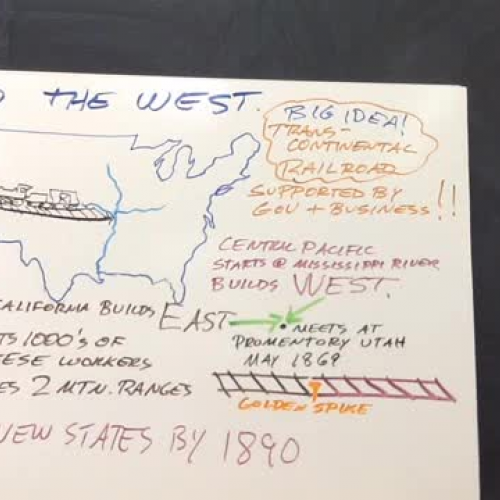 THE WEST.
BIG IDEA!
TRANS-
CONTINENTAL
RAILROAD
SUPPORTED BY
GOV + BUSINESS!!
CENTRAL PACIFIC
STARTS @ MISSISSIPPI RIVER
BUILDS WEST.
CALIFORNIA BUILDS EAST
MEETS AT
PROMONTORY UTAH
MAY 1869
TS 1000'S OF
ESE WORKERS
ES 2 MTN. RANGES
GOLDEN SPIKE
NEW STATES BY 1890